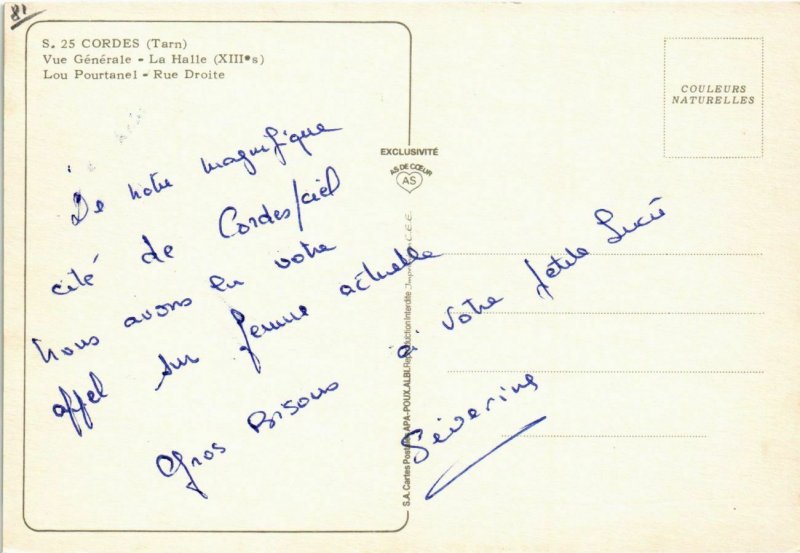 81
S. 25 CORDES (Tarn)
Vue Générale - La Halle (XIIIes)
Lou Pourtanel - Rue Droite
COULEURS
NATURELLES
EXCLUSIVITÉ
AS DE CŒUR
AS
S.A. Cartes Postales APA-POUX, ALBI. Reproduction Interdite. Imprimé en C.E.E.
De notre magnifique
cité de Cordes/ciel
Nous avons eu votre
appel sur femme actuelle
Gros Bisous à votre petite
Séverine